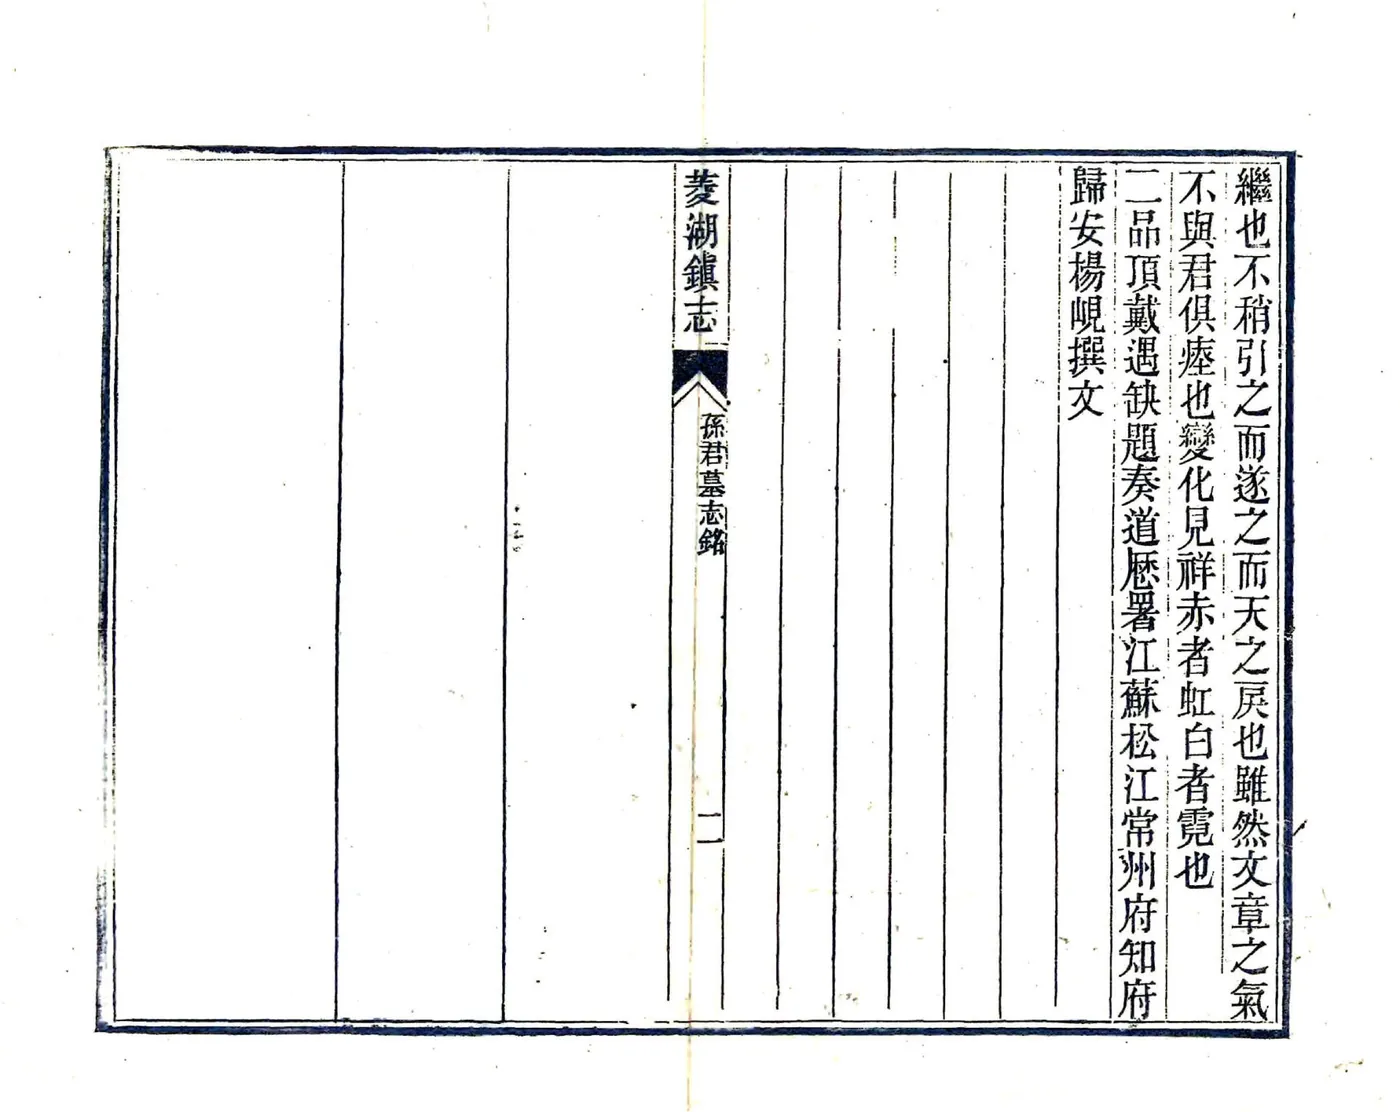 繼也不稍引之而遂之而天之戾也雖然文章之氣
不與君俱瘞也變化見祥赤者虹白者霓也
二品頂戴遇缺題奏道歷署江蘇松江常州府知府
歸安楊峴撰文
菱湖鎭志
孫君墓志銘
二